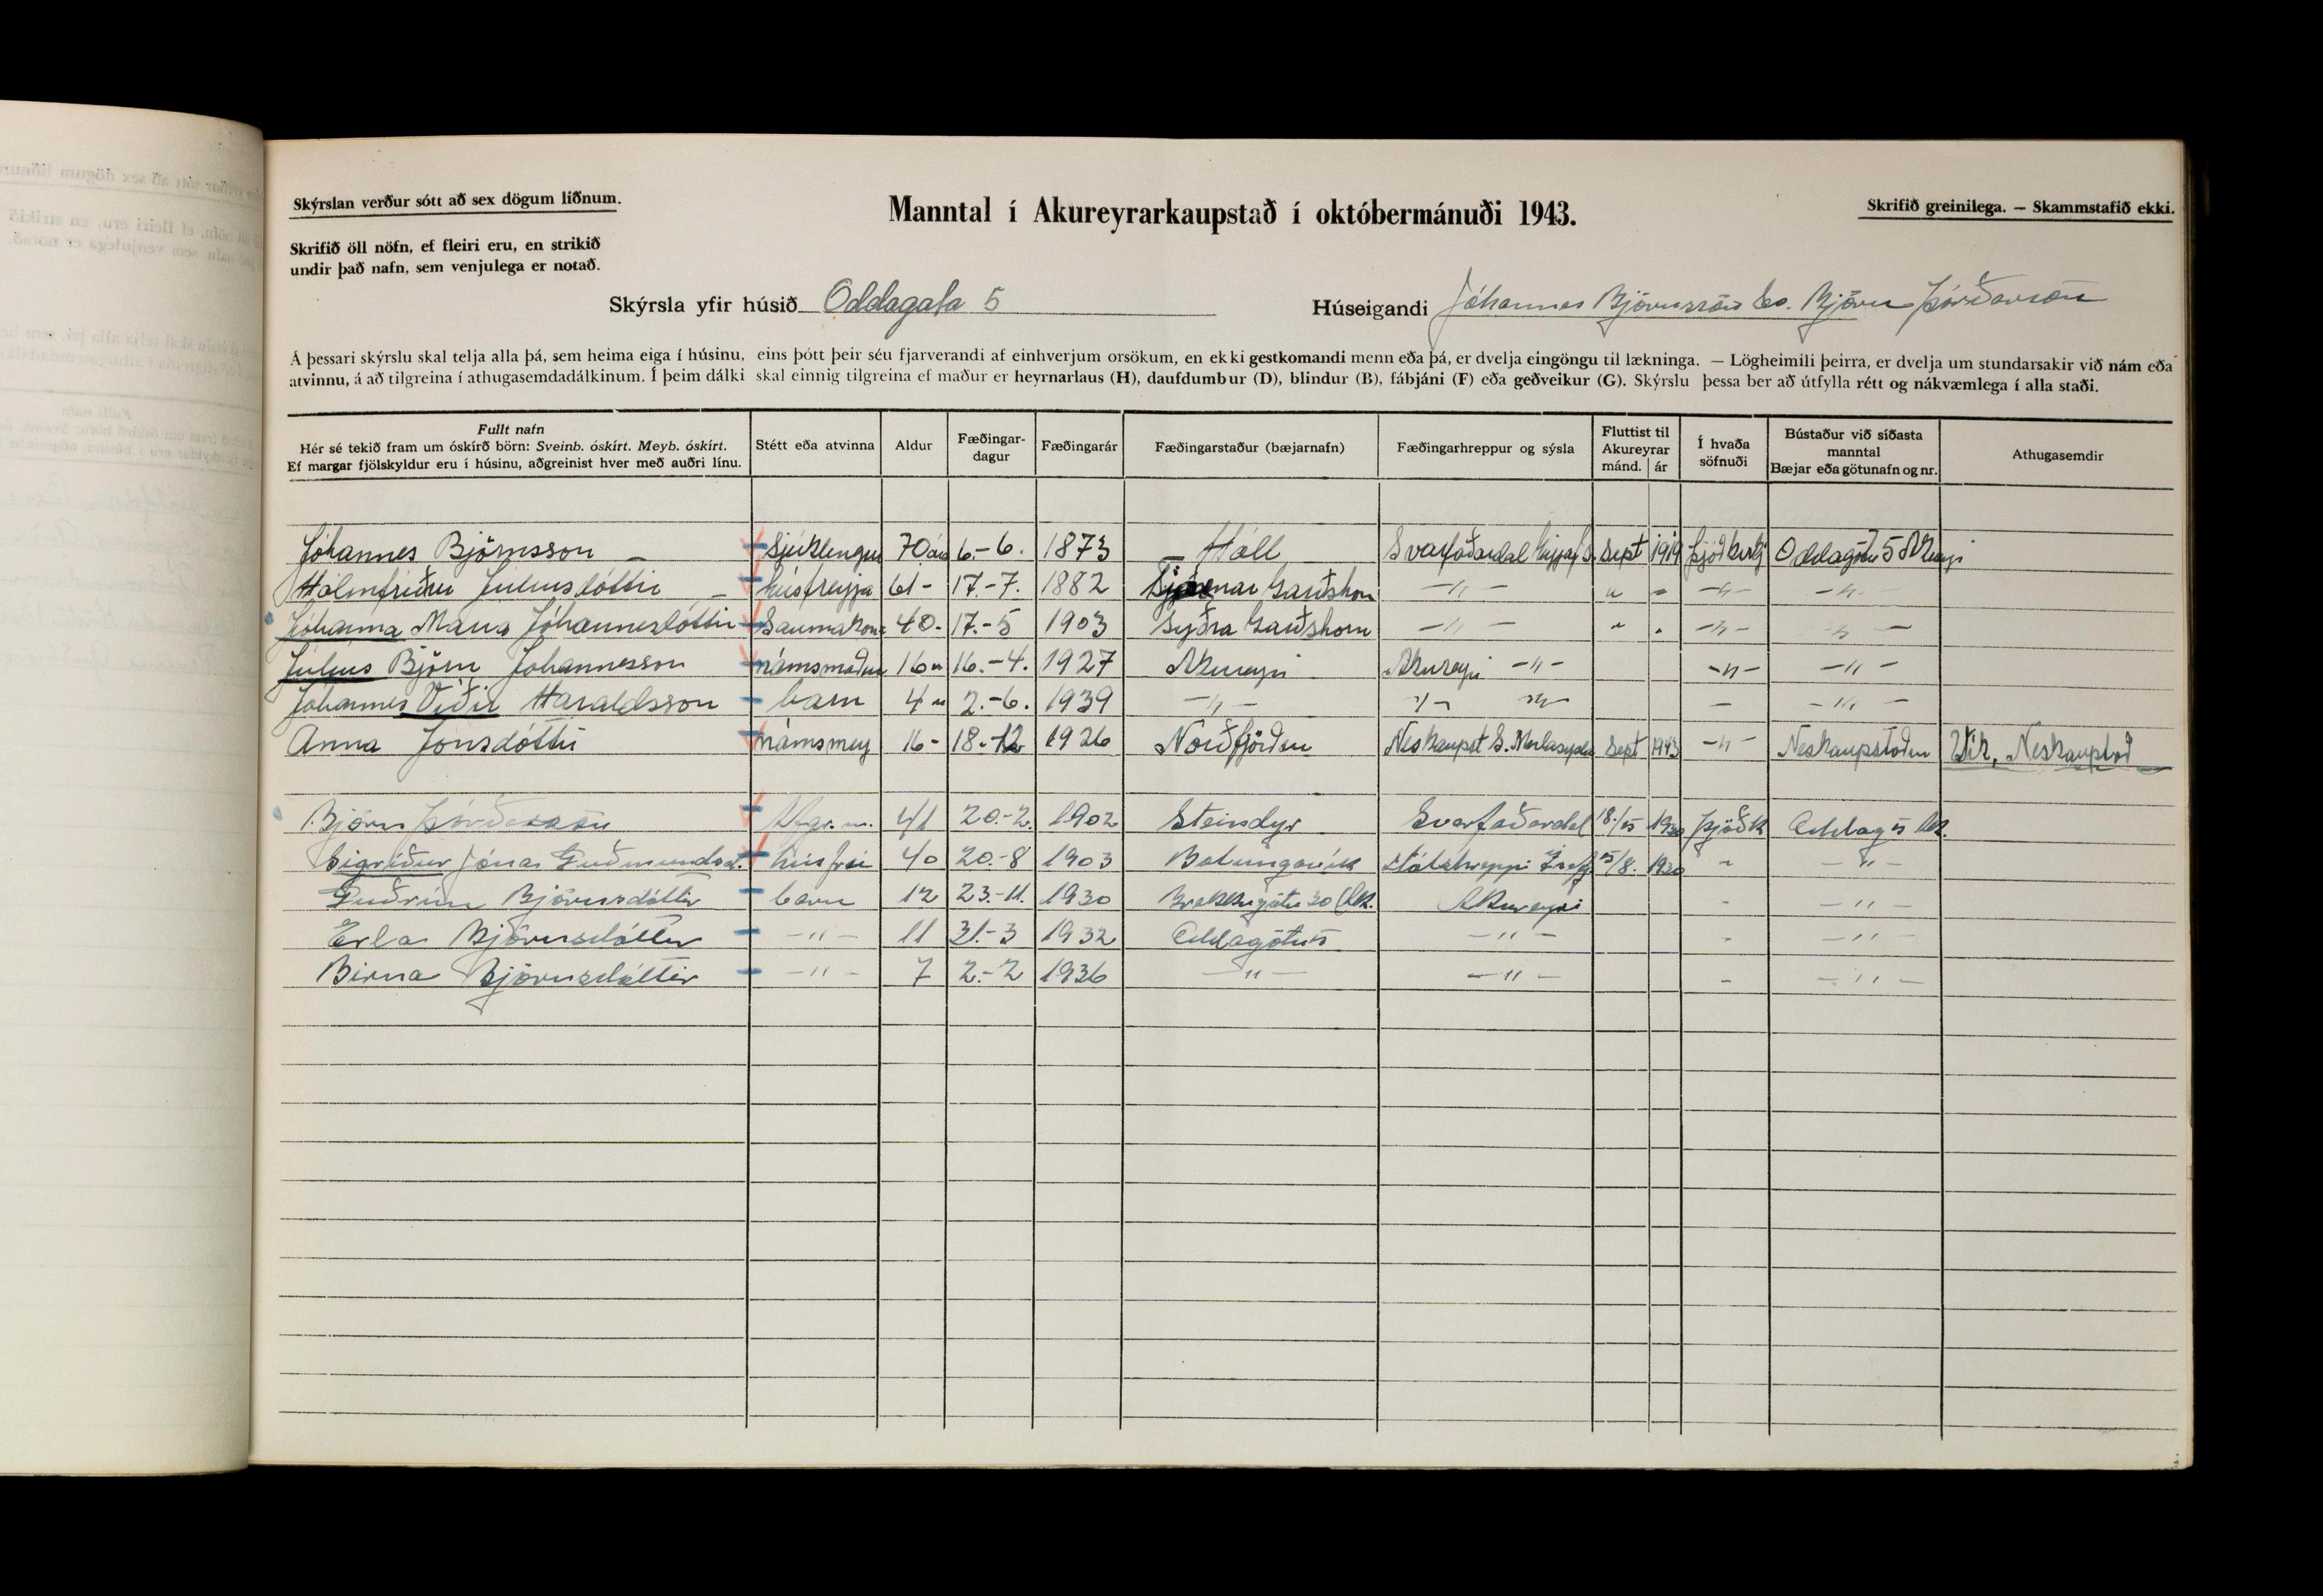 Skýrslan verður sótt að sex dögum liðnum.
Manntal í Akureyrarkaupstað í októbermánuði 1943.
Skrifið greinilega. — Skammstafið ekki.
Skrifið öll nöfn, ef fleiri eru, en strikið
undir það nafn, sem venjulega er notað.
Skýrsla yfir húsið Oddagata 5
Húseigandi Jóhannes Björnsson &co. Björn Þórðarson
Á þessari skýrslu skal telja alla þá, sem heima eiga í húsinu, eins þótt þeir séu fjarverandi af einhverjum orsökum, en ekki gestkomandi menn eða þá, er dvelja eingöngu til lækninga. — Lögheimili þeirra, er dvelja um stundarsakir við nám eða
atvinnu, á að tilgreina í athugasemdadálkinum. Í þeim dálki skal einnig tilgreina ef maður er heyrnarlaus (H), daufdumbur (D), blindur (B), fábjáni (F) eða geðveikur (G). Skýrslu þessa ber að útfylla rétt og nákvæmlega í alla staði.
Fullt nafn
Hér sé tekið fram um óskírð börn: Sveinb. óskírt. Meyb. óskírt.
Ef margar fjölskyldur eru í húsinu, aðgreinist hver með auðri línu.
Stétt eða atvinna
Aldur
Fæðingar-
dagur
Fæðingarár
Fæðingarstaður (bæjarnafn)
Fæðingarhreppur og sýsla
Fluttist til
Akureyrar
mánd. ár
Í hvaða
söfnuði
Bústaður við síðasta
manntal
Bæjar eða götunafn og nr.
Athugasemdir
Jóhannes Björnsson Sjúklingur 70 ára 6.-6. 1873 Háll Svarfaðardal Sept 1919 Þjóðkirkj Oddagötu 5 Akureyri
Hólmfríður Júlíusdóttir húsfreyja 61- 17.-7. 1882 Garðshorn -"- " " -"- -"-
Jóhanna María Jóhannesdóttir Saumakona 40- 17.-5 1903 Syðra Garðshorn -"- " " -"- -"-
Júlíus Björn Jóhannesson námsmaður 16 " 16.-4. 1927 Akureyri Akureyri -"- -"- -"-
Jóhannes Víðir Haraldsson barn 4 " 2.-6. 1939 -"- -"- -"- - -"-
Anna Jónsdóttir námsmey 16- 18.-12 1926 Norðfjörður Neskaupst S. Múlasýsla Sept 1943 -"- Neskaupstaður Vík, Neskaupstað
Björn Þórðarson Afgr.m. 41 20.-2. 1902 Steindyr Svarfaðardal 18./5 1930 Þjóðk Oddag 5 Ak.
Sigríður Jónas Guðmundsd. húsfrú 40 20.-8 1903 Bolungavík 15/8. 1930 " -"-
Guðrún Björnsdóttir barn 12 23.-11. 1930 Brekkugötu 30 Ak. Akureyri - -"-
Erla Björnsdóttir -"- 11 31.-3 1932 Oddagötu 5 -"- - -"-
Birna Björnsdóttir -"- 7 2.-2 1936 -"- -"- - -"-